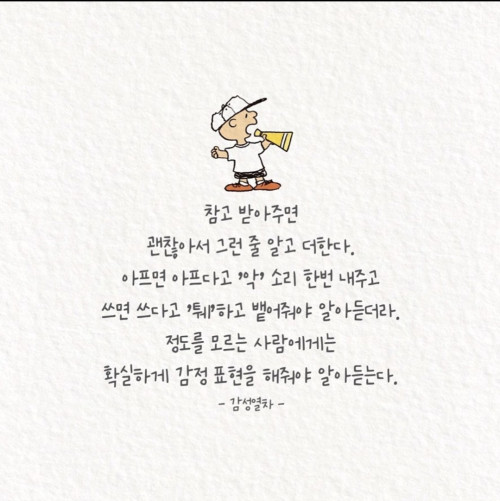 참고 받아주면
괜찮아서 그런 줄 알고 더한다.
아프면 아프다고 '악' 소리 한번 내주고
쓰면 쓰다고 '퉤'하고 뱉어줘야 알아듣더라.
정도를 모르는 사람에게는
확실하게 감정 표현을 해줘야 알아듣는다.
- 감성열차 -